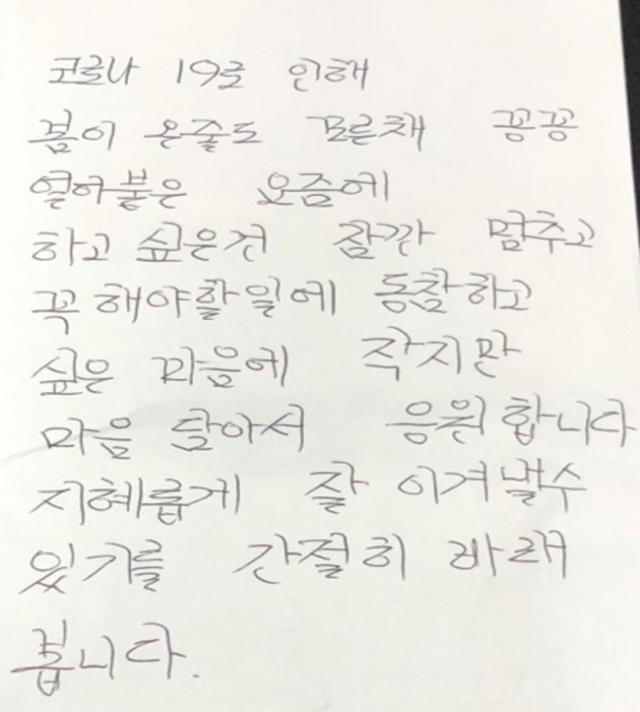 코로나 19로 인해
봄이 온줄도 모른채 꽁꽁
얼어붙은 요즘에
하고 싶은건 잠깐 멈추고
꼭 해야할일에 동참하고
싶은 마음에 작지만
마음 담아서 응원합니다
지혜롭게 잘 이겨낼수
있기를 간절히 바래
봅니다.